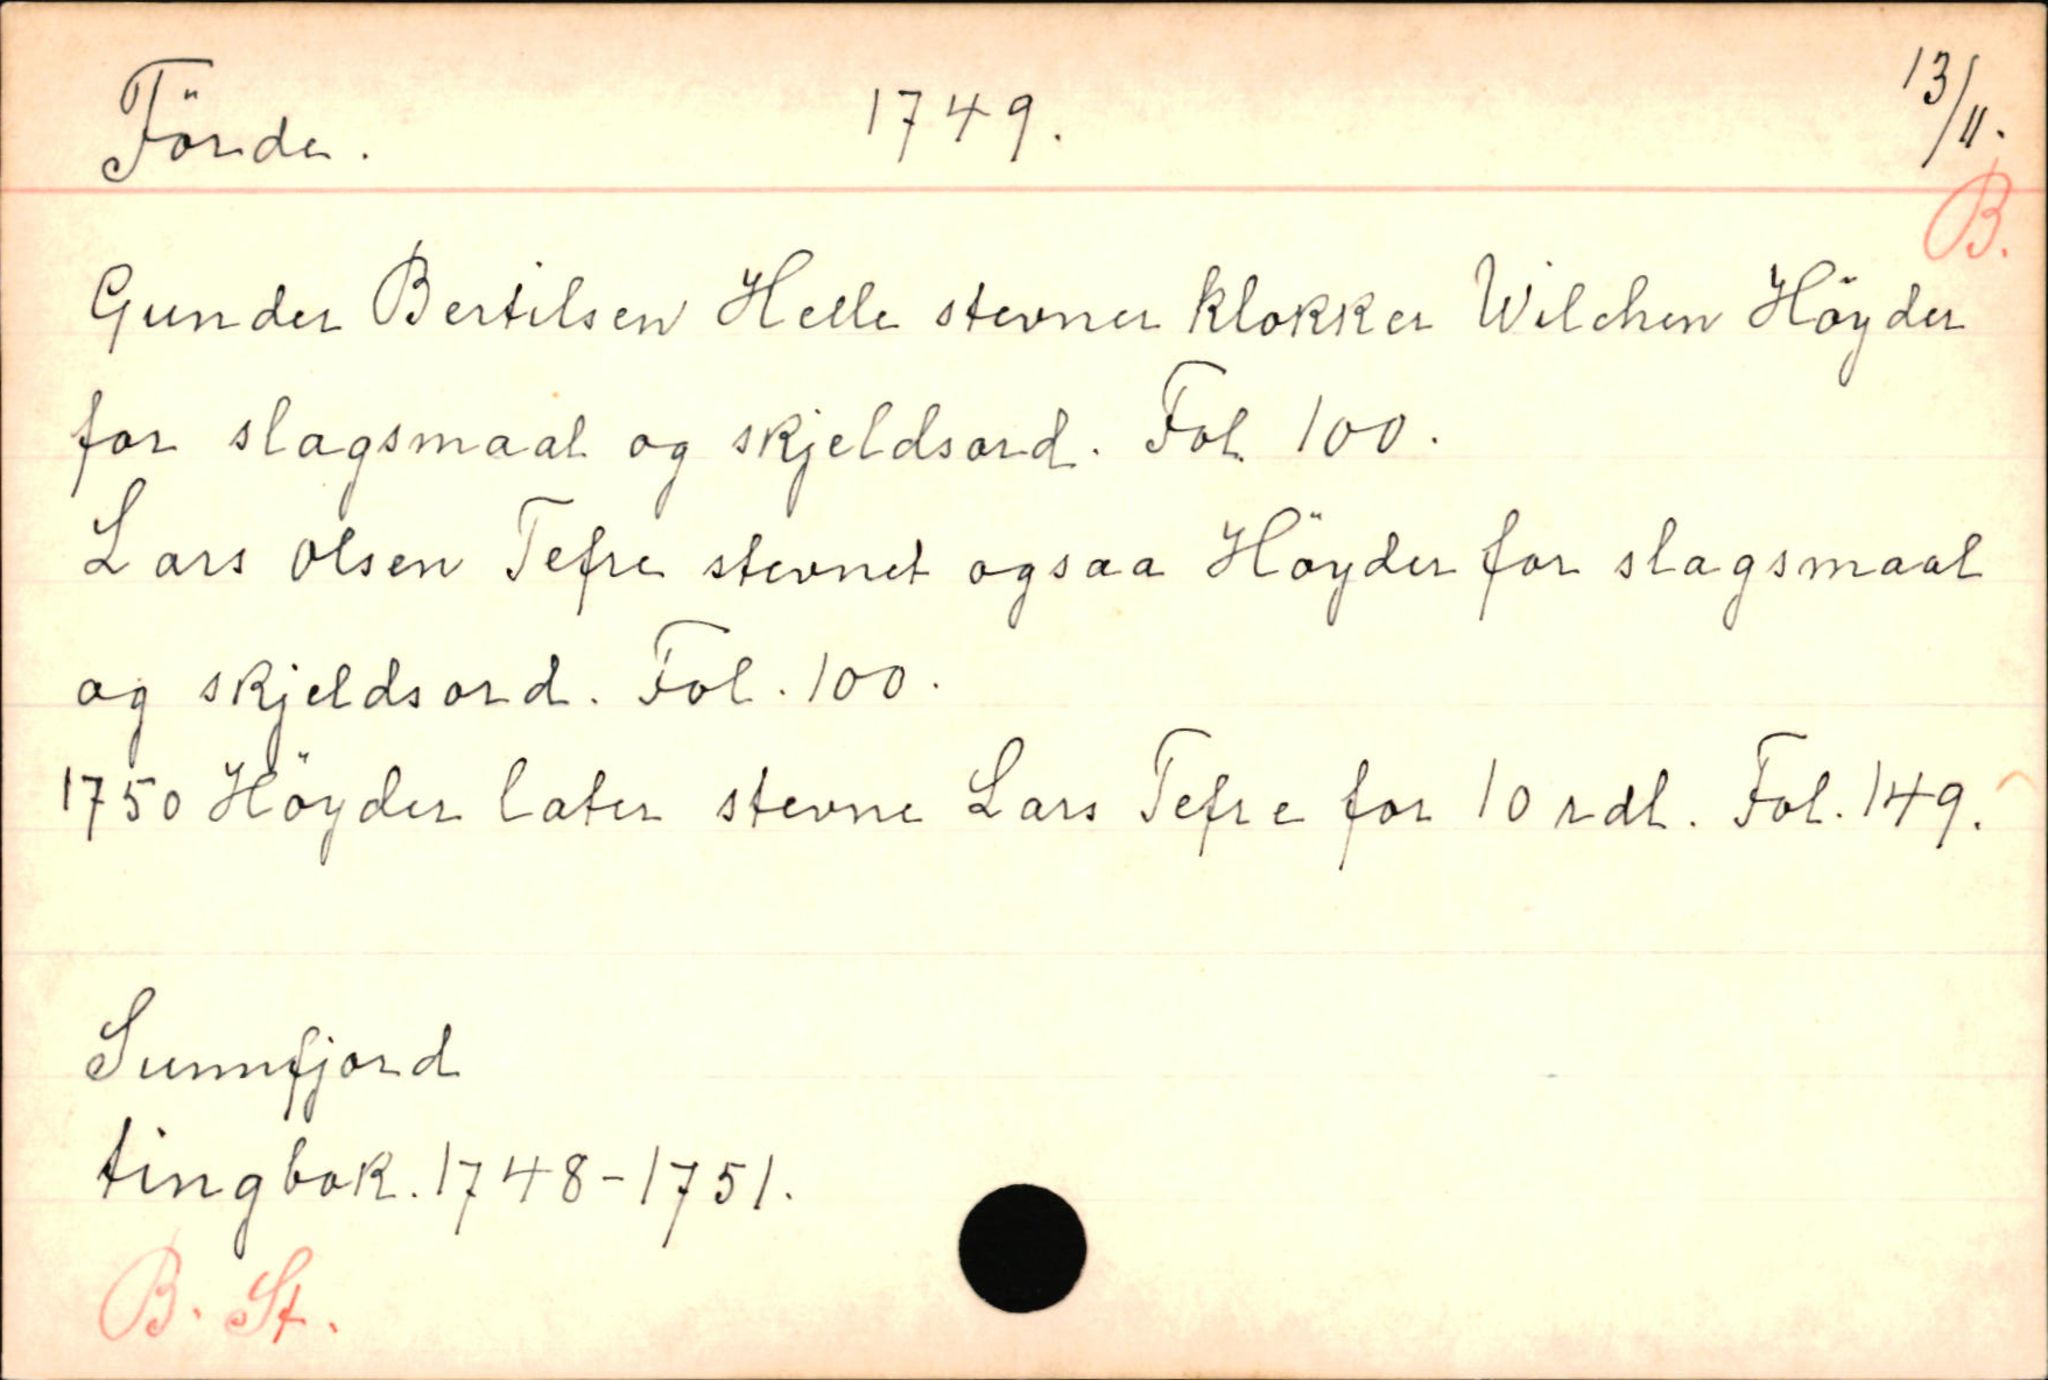 Förde. 1749. 13/11.
B.
Gunder Bertilsen Helle stevner klokker Wilchen Höyder
for slagsmaal og skjeldsord. Fol. 100.
Lars Olsen Tefre stevnet ogsaa Höyder for slagsmaal
og skjeldsord. Fol. 100.
1750 Höyder later stevne Lars Tefre for 10 rdl. Fol. 149.
Sunnfjord
tingbok. 1748-1751.
B. St.